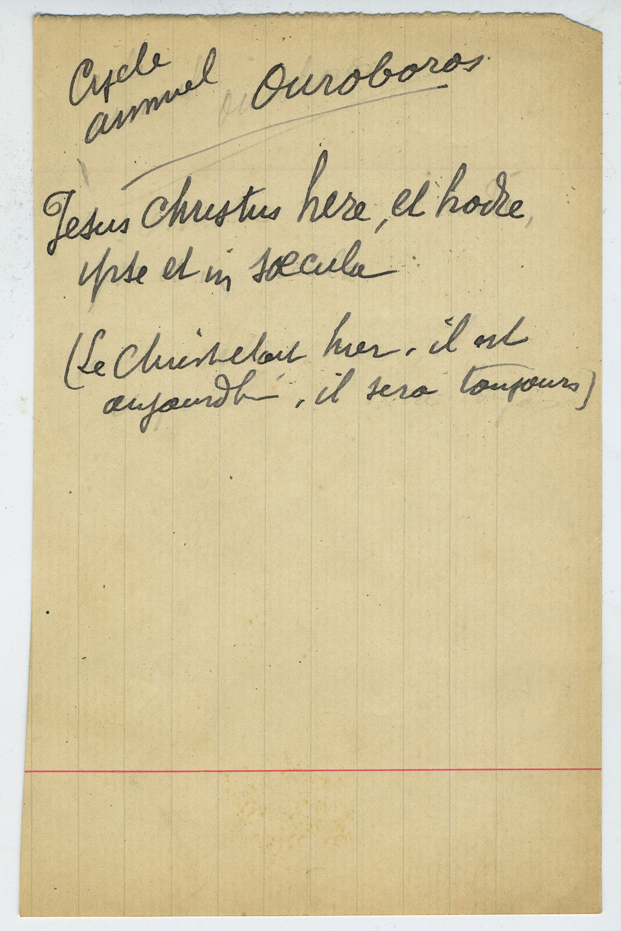 Cycle
annuel
Ouroboros
Jesus Christus here, et hodie,
ipse et in sæcula
(Le Christ etait hier, il est
aujourdhui, il sera toujours)